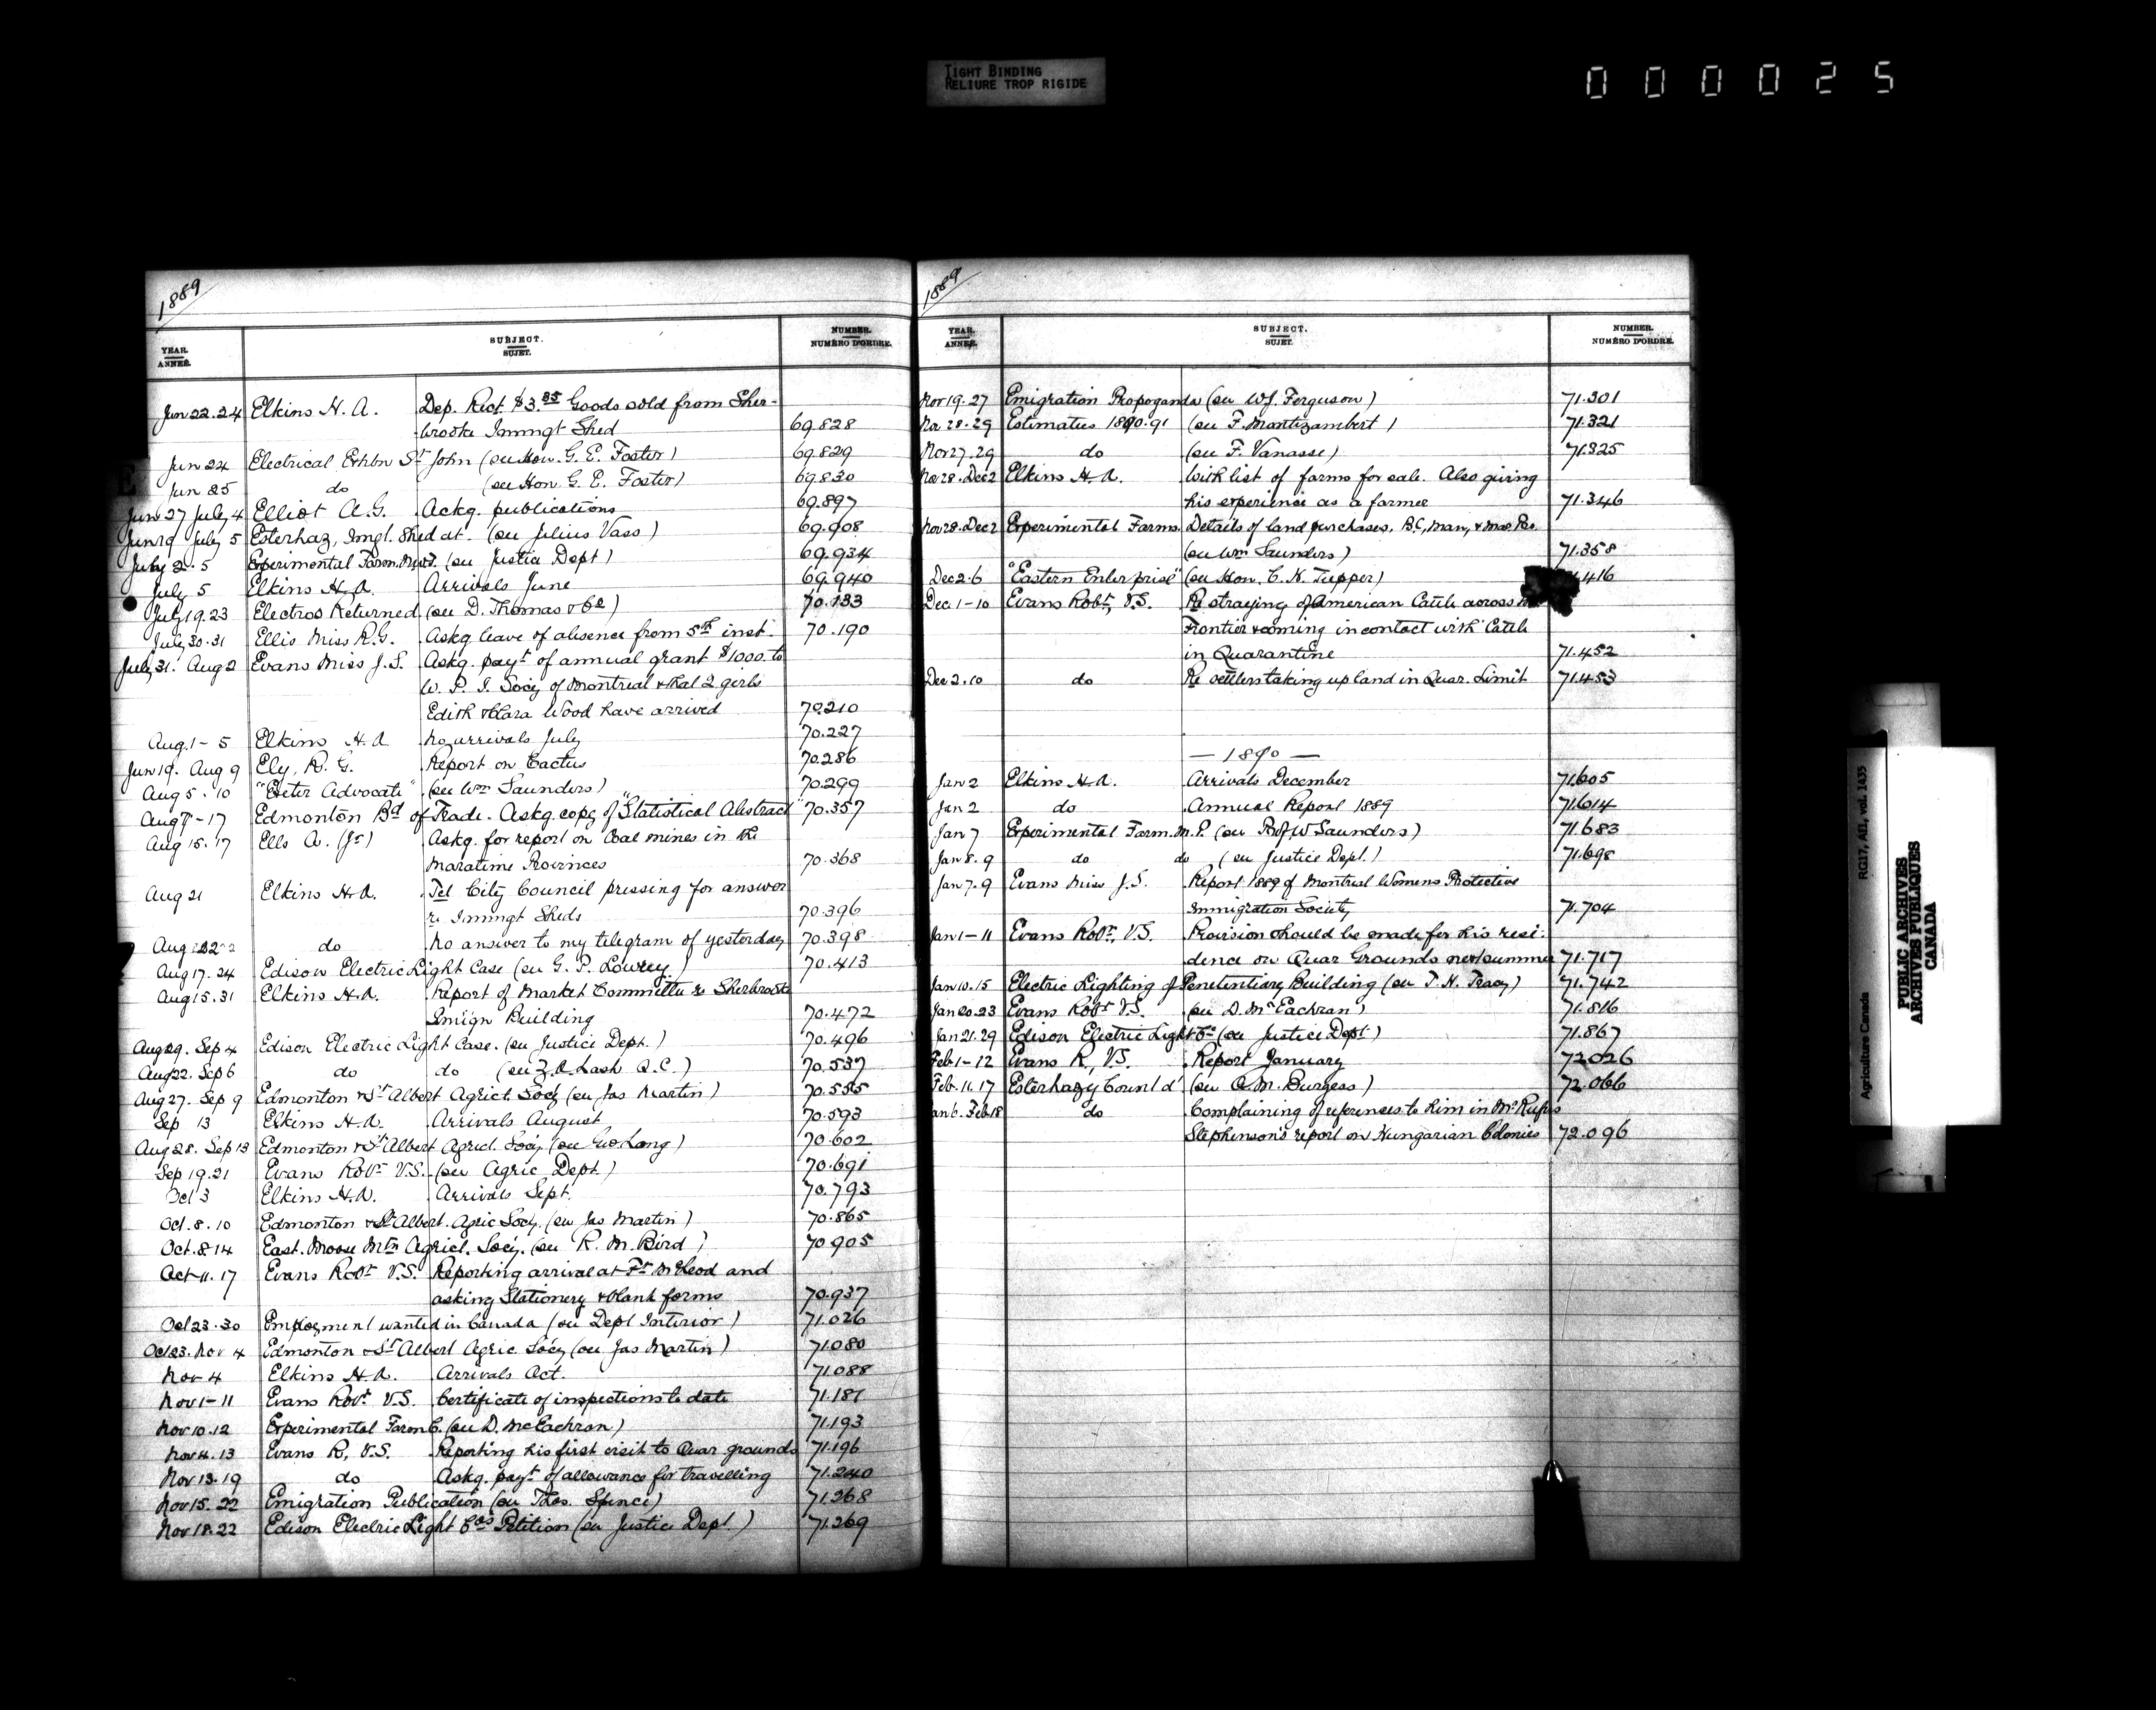 TIGHT BINDING
RELIURE TROP RIGIDE
000025
1889
YEAR. ANNÉE. SUBJECT. SUJET. NUMBER. NUMÉRO D'ORDRE.
Jun 22.24 Elkins H. A. Dep. Rect. $3.85 Goods sold from Sher-
brooke Immgt Shed 69.828
Jun 24 Electrical Exhbn St John (see Hon. G. E. Foster) 69.829
Jun 25 do (see Hon G. E. Foster) 69.830
Jun 27 July 4 Elliot A. G. Ackg. publications 69.897
Jun 19 July 5 Esterhaz, Imgt. Shed at. (see Julius Vass) 69.908
July 2.5 Experimental Farm. N.W.T. (see Justice Dept) 69.934
July 5 Elkins H. A. Arrivals June 69.940
July 19.23 Electros Returned (see D. Thomas & Co) 70.133
July 30.31 Ellis Miss R. G. Askg leave of absence from 5th inst. 70.190
July 31. Aug 2 Evans Miss J. S. Askg. payt of annual grant $1000. to
W. P. I. Socy of Montreal & that 2 girls
Edith & Clara Wood have arrived 70.210
Aug. 1-5 Elkins H. A No arrivals July 70.227
Jun 19. Aug 9 Ely, R. G. Report on Cactus 70.286
Aug 5.10 "Exeter Advocate" (see Wm Saunders) 70.299
Aug 7-17 Edmonton Bd of Trade. Askg. copy of "Statistical Abstract" 70.357
Aug 15.17 Ells A. (Jr) Askg. for report on Coal mines in the
Maratime Provinces 70.368
Aug 21 Elkins H. A. Tel City Council pressing for answer
re Immgt Sheds 70.396
Aug 22 do No answer to my telegram of yesterday 70.398
Aug 17.24 Edison Electric Light Case (see G. P. Lowrey) 70.413
Aug 15.31 Elkins H. A. Report of Market Committee re Sherbrooke
Emign Building 70.472
Aug 29. Sep 4 Edison Electric Light Case. (see Justice Dept.) 70.496
Aug 22. Sep 6 do do (see Z. A. Lash Q.C.) 70.537
Aug 27. Sep 9 Edmonton & St Albert Agricl. Socy (see Jas Martin) 70.555
Sep 13 Elkins H. A. Arrivals August 70.593
Aug 28. Sep 13 Edmonton & St Albert Agricl. Socy (see Geo. Long) 70.602
Sep 19.21 Evans Robt V.S. (see Agric Dept.) 70.691
Oct 3 Elkins H. A. Arrivals Sept. 70.793
Oct. 8.10 Edmonton & St Albert. Agric Socy. (see Jas Martin) 70.865
Oct. 8.14 East. Moose Mtn Agricl. Socy. (see R. M. Bird) 70.905
Oct 11.17 Evans Robt V.S. Reporting arrival at Ft McLeod and
asking Stationery & blank forms 70.937
Oct 23.30 Employment wanted in Canada (see Dept Interior) 71.026
Oct 23. Nov 4 Edmonton & St Albert Agric Socy (see Jas Martin) 71.080
Nov 4 Elkins H. A. Arrivals Oct. 71.088
Nov 1-11 Evans Robt V.S. Certificate of inspections to date 71.181
Nov 10.12 Experimental Farm C. (see D. McEachran) 71.193
Nov 4.13 Evans R, V.S. Reporting his first visit to Quar. grounds 71.196
Nov 13.19 do Askg. payt of allowance for travelling 71.240
Nov 15.22 Emigration Publication (see Thos. Spence) 71.268
Nov 18.22 Edison Electric Light Cos Petition (see Justice Dept.) 71.269
1889
YEAR. ANNÉE. SUBJECT. SUJET. NUMBER. NUMÉRO D'ORDRE.
Nov 19.27 Emigration Propoganda (see W J. Ferguson) 71.301
Nov 28.29 Estimates 1890.91 (see F. Montizambert) 71.321
Nov 27.29 do (see F. Vanasse) 71.325
Nov 28. Dec 2 Elkins H. A. With list of farms for sale. Also giving
his experience as a farmer 71.346
Nov 28. Dec 2 Experimental Farms. Details of land purchases, B.C, Man,
(see Wm Saunders) 71.358
Dec 2.6 "Eastern Enterprise" (see Hon. C. H. Tupper) 416
Dec 1-10 Evans Robt, V.S. Re straying of American Cattle across
Frontier & coming in contact with Cattle
in Quarantine 71.452
Dec 2.10 do Re settlers taking up land in Quar. Limit 71.453
— 1890 —
Jan 2 Elkins H. A. Arrivals December 71.605
Jan 2 do Annual Report 1889 71.614
Jan 7 Experimental Farm. M. P. (see Prof W Saunders) 71.683
Jan 8.9 do do (see Justice Dept.) 71.698
Jan 7.9 Evans Miss J. S. Report 1889 of Montreal Womens Protective
Immigration Society 71.704
Jan 1-11 Evans Robt, V.S. Provision should be made for his resi-
dence on Quar Grounds next summer 71.717
Jan 10.15 Electric Lighting of Penetentiary Building (see T. H. Tracy) 71.742
Jan 20.23 Evans Robt V.S. (see D. McEachran) 71.816
Jan 21.29 Edison Electric Light Co (see Justice Dept.) 71.867
Feb. 1-12 Evans R, V.S. Report January 72.026
Feb. 11.17 Esterhazy Count d' (see A. M. Burgess) 72.066
Jan 6. Feb 18 do Complaining of references to him in Mr Rufus
Stephenson's report on Hungarian Colonies 72.096
Agriculture Canada RG17, AII, vol. 1435
PUBLIC ARCHIVES
ARCHIVES PUBLIQUES
CANADA